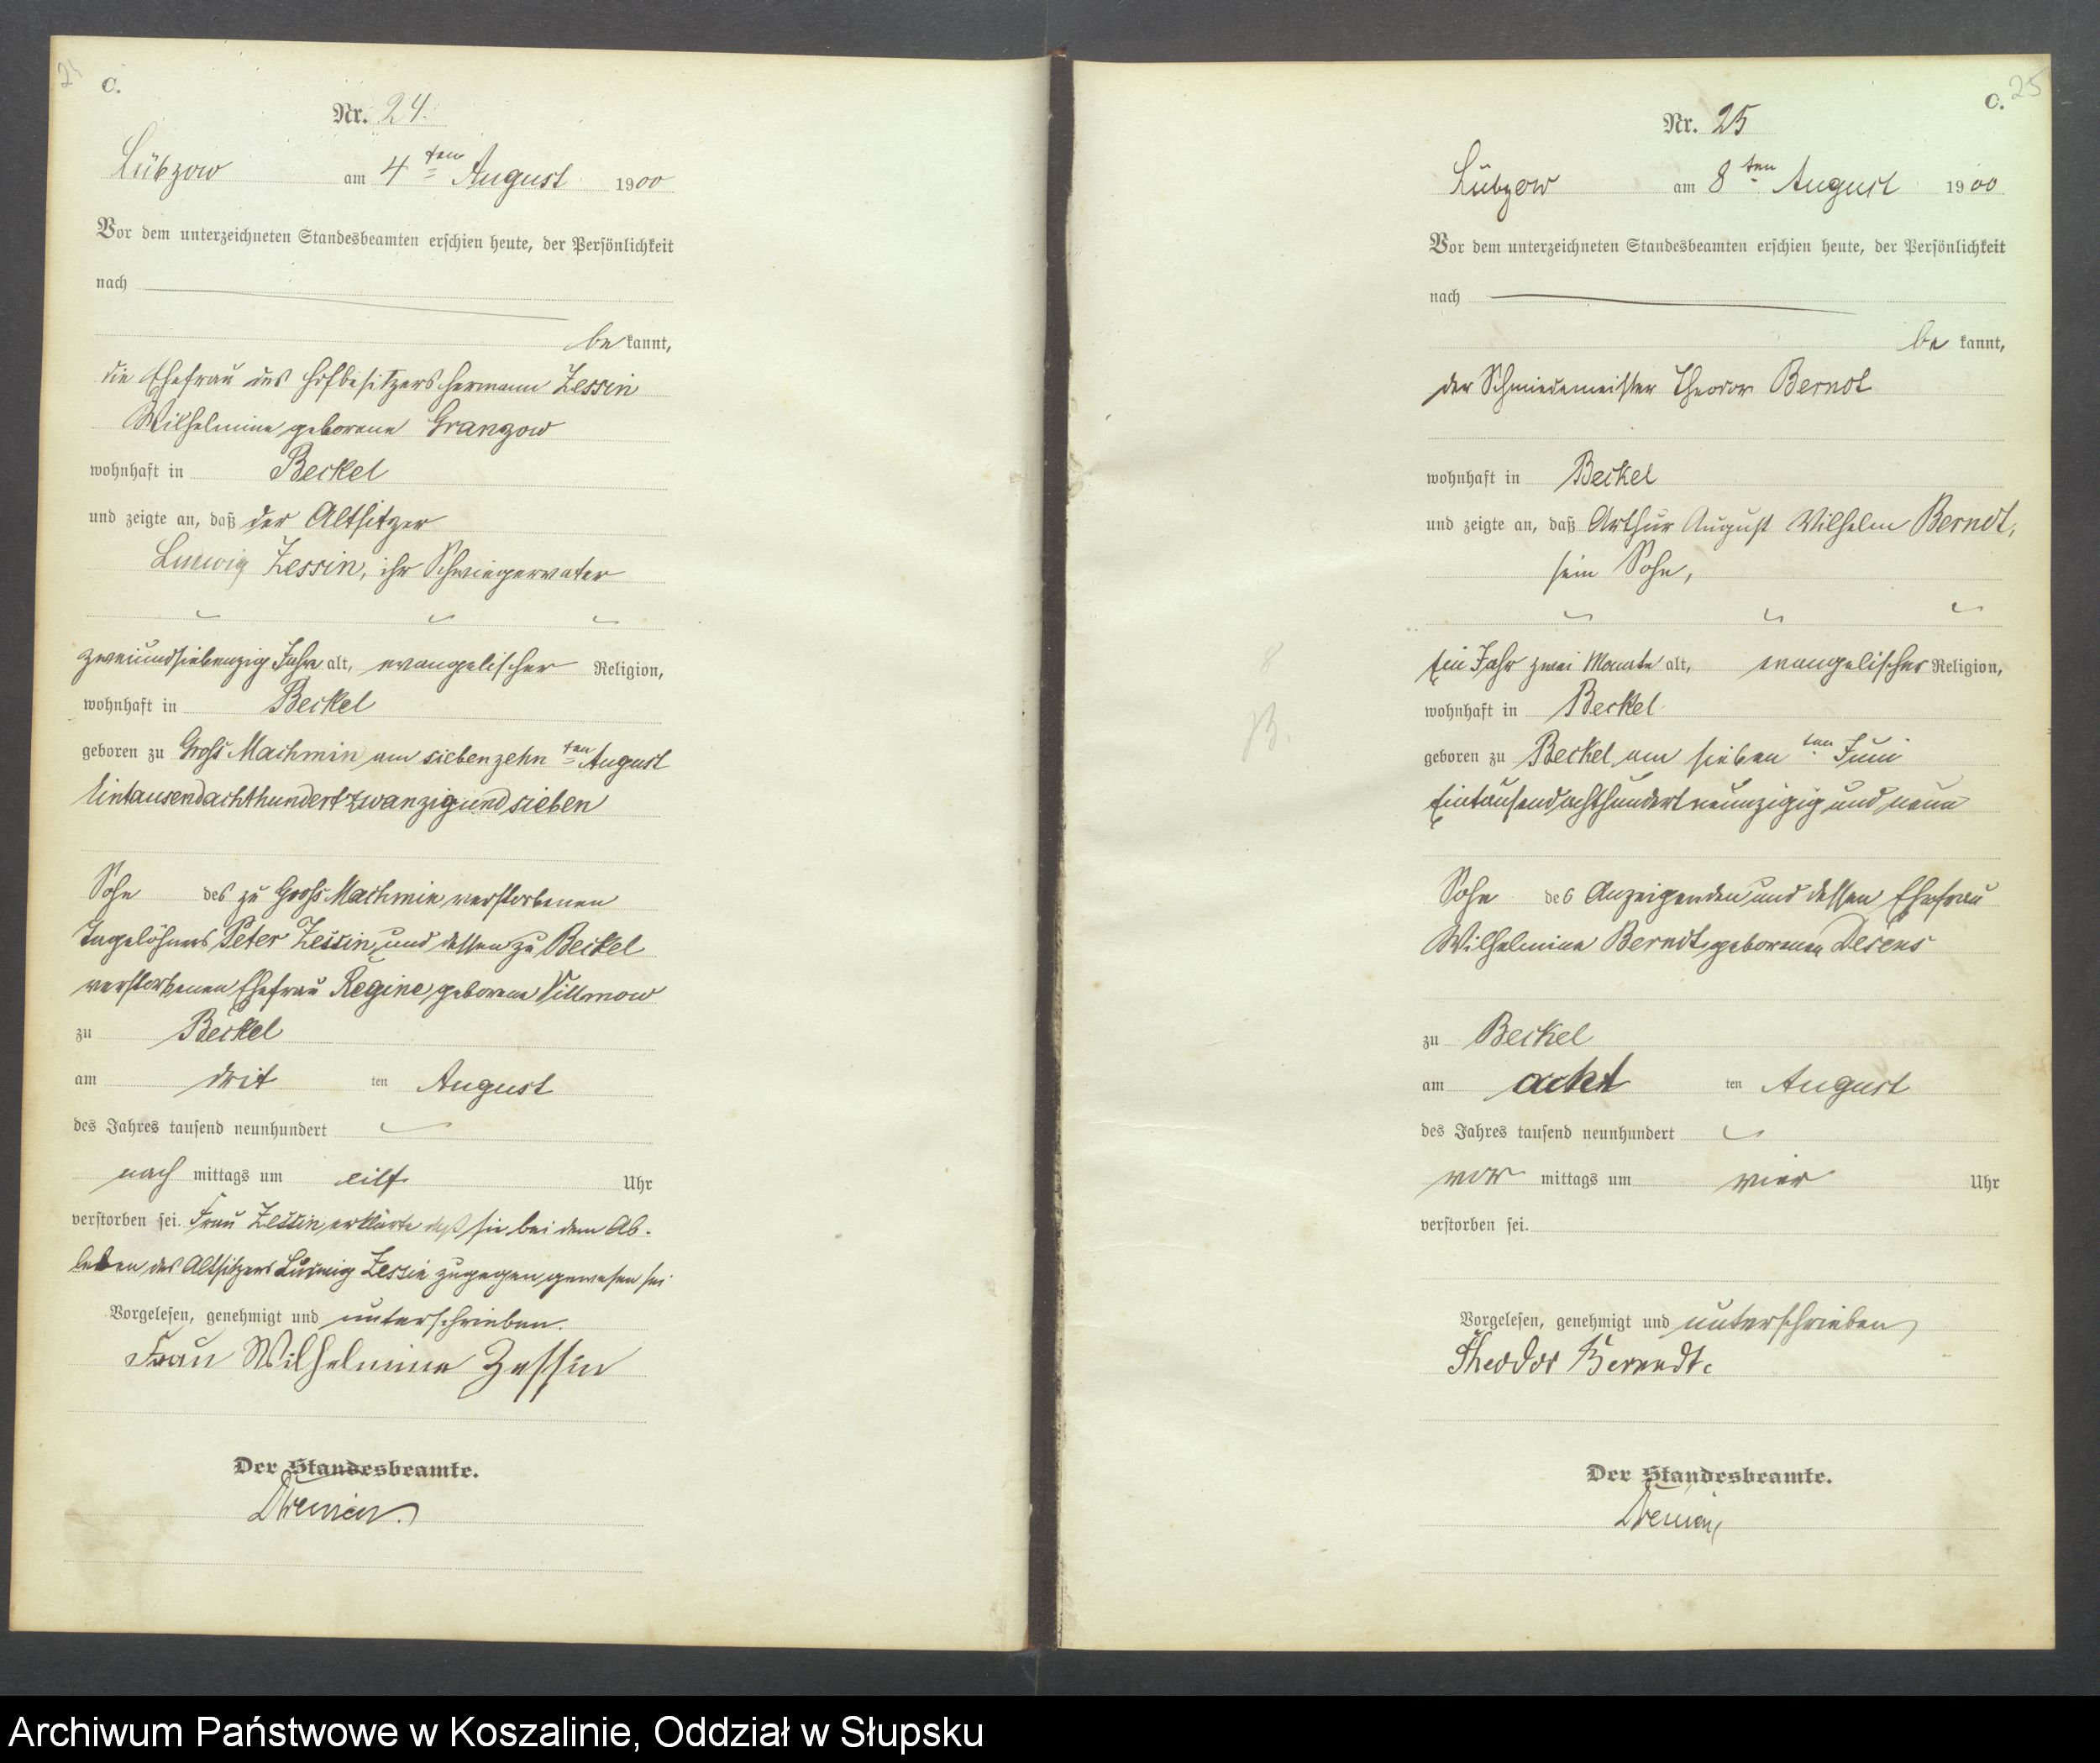 C.
Nr. 24.
Lübzow am 4ten August 1900
Vor dem unterzeichneten Standesbeamten erschien heute, der Persönlichkeit
nach
bekannt,
die Ehefrau des Hofbesitzers Hermann Zessin
Wilhelmine geborene Granzow
wohnhaft in Beckel
und zeigte an, daß der Altsitzer
Ludwig Zessin, ihr Schwiegervater
zweiundsiebenzig Jahre alt, evangelischer Religion,
wohnhaft in Beckel
geboren zu Groß Machmin am siebenzehnten August
Eintausendachthundertzwanzigundsieben
Sohn des zu Groß Machmin verstorbenen
Tagelöhners Peter Zessin und dessen zu Beckel
verstorbenen Ehefrau Regine geborene Villmow
zu Beckel
am drit ten August
des Jahres tausend neunhundert
nach mittags um eilf Uhr
verstorben sei. Frau Zessin erklärte daß sie bei dem Ab-
leben des Altsitzers Ludwig Zessin zugegen gewesen sei
Vorgelesen, genehmigt und unterschrieben.
Frau Wilhelmine Zessin
Der Standesbeamte.
C. 25
Nr. 25
Lübzow am 8ten August 1900
Vor dem unterzeichneten Standesbeamten erschien heute, der Persönlichkeit
nach
be kannt,
der Schmiedemeister Theodor Berndt
wohnhaft in Beckel
und zeigte an, daß Arthur August Wilhelm Berndt,
sein Sohn,
Ein Jahr zwei Monate alt, evangelischer Religion,
wohnhaft in Beckel
geboren zu Beckel am siebenten Juni
Eintausendachthundertneunzigig und neun
Sohn des Anzeigenden und dessen Ehefrau
Wilhelmine Berndt geborenen Desens
zu Beckel
am acht ten August
des Jahres tausend neunhundert
vor mittags um vier Uhr
verstorben sei.
Vorgelesen, genehmigt und unterschrieben
Theodor Berendt.
Der Standesbeamte.
Archiwum Państwowe w Koszalinie, Oddział w Słupsku